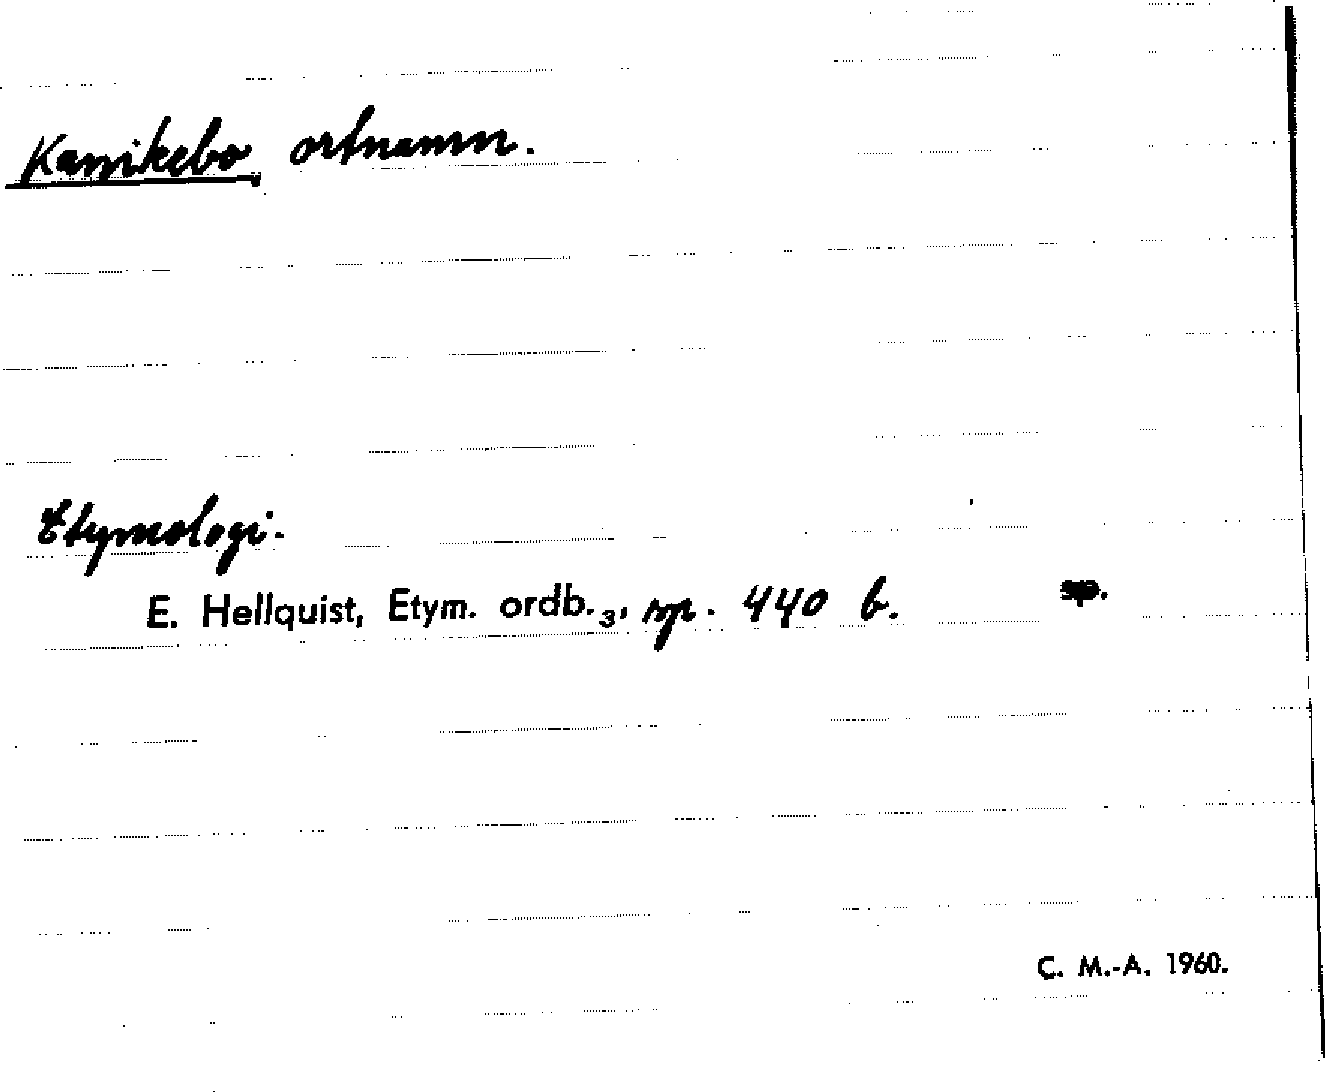 Kassikebo, ortnamn.
Etymologi.
E. Hellquist, Etym. ordb.₃, sp. 440 b. sp.
C. M.-A. 1960.